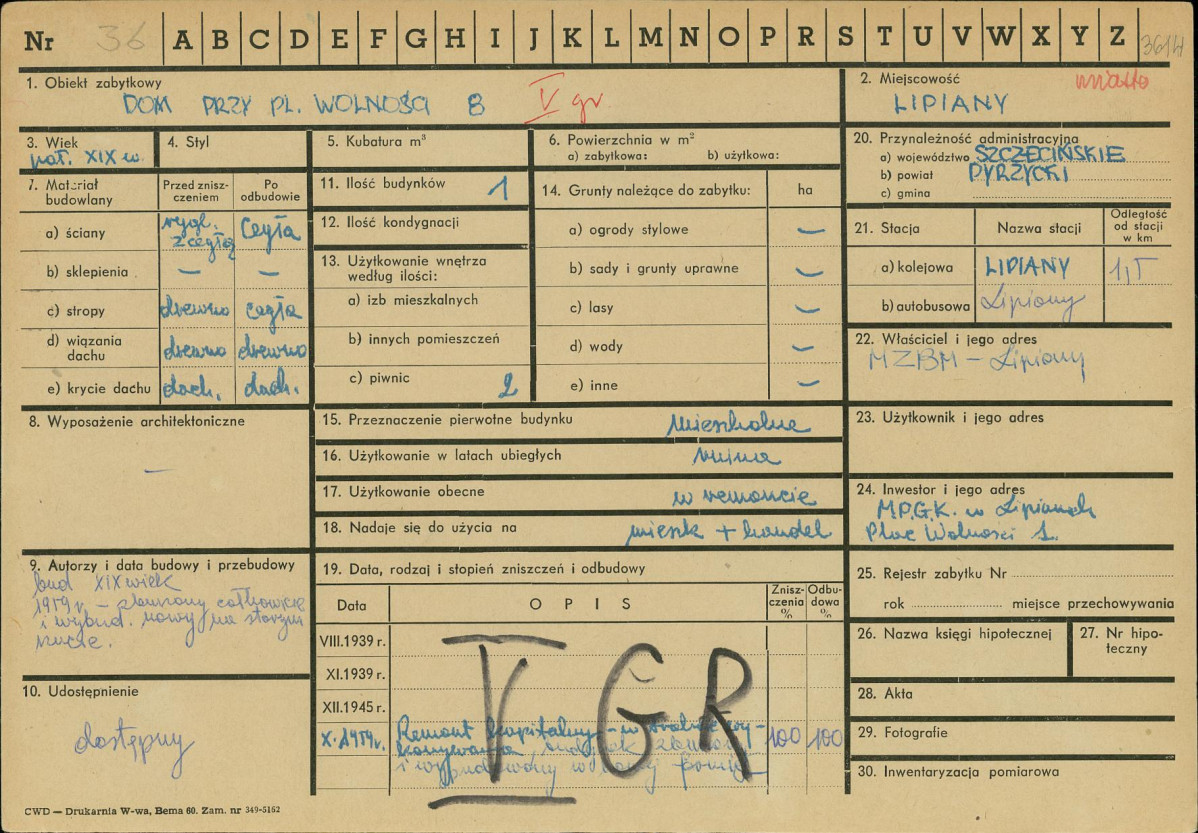 Nr 36 A B C D E F G H I J K L M N O P R S T U V W X Y Z 3614
1. Obiekt zabytkowy
DOM PRZY PL. WOLNOŚCI 8 V gr
2. Miejscowość miasto
LIPIANY
3. Wiek
poł. XIX w.
4. Styl
5. Kubatura m³
6. Powierzchnia w m²
a) zabytkowa: b) użytkowa:
20. Przynależność administracyjna
a) województwo SZCZECIŃSKIE
b) powiat PYRZYCKI
c) gmina
7. Materiał budowlany
Przed zniszczeniem
Po odbudowie
a) ściany rygl. z cegłą cegła
b) sklepienia — —
c) stropy drewno cegła
d) wiązania dachu drewno drewno
e) krycie dachu dach. dach.
11. Ilość budynków 1
12. Ilość kondygnacji
13. Użytkowanie wnętrza
według ilości:
a) izb mieszkalnych
b) innych pomieszczeń
c) piwnic 2
14. Grunty należące do zabytku: ha
a) ogrody stylowe —
b) sady i grunty uprawne —
c) lasy —
d) wody —
e) inne —
21. Stacja Nazwa stacji Odległość od stacji w km
a) kolejowa LIPIANY 1,5
b) autobusowa Lipiany
22. Właściciel i jego adres
MZBM – Lipiany
8. Wyposażenie architektoniczne
—
15. Przeznaczenie pierwotne budynku mieszkalne
16. Użytkowanie w latach ubiegłych
17. Użytkowanie obecne w remoncie
18. Nadaje się do użycia na mieszk + handel
23. Użytkownik i jego adres
24. Inwestor i jego adres
M.P.G.K. w Lipianach
Plac Wolności 1.
9. Autorzy i data budowy i przebudowy
bud XIX wiek
1959 r. – zburzony całkowicie
i wybud. nowy na starym
rzucie.
10. Udostępnienie
dostępny
19. Data, rodzaj i stopień zniszczeń i odbudowy
Data OPIS Zniszczenia % Odbudowa %
VIII.1939 r.
XI.1939 r.
XII.1945 r.
X.1959r. Remont kapitalny – w trakcie wy-
konywania, budynek zburzony 100 100
i wybudowany w nowej
V GR
25. Rejestr zabytku Nr
rok miejsce przechowywania
26. Nazwa księgi hipotecznej
27. Nr hipoteczny
28. Akta
29. Fotografie
30. Inwentaryzacja pomiarowa
CWD — Drukarnia W-wa, Bema 60. Zam. nr 349-5162